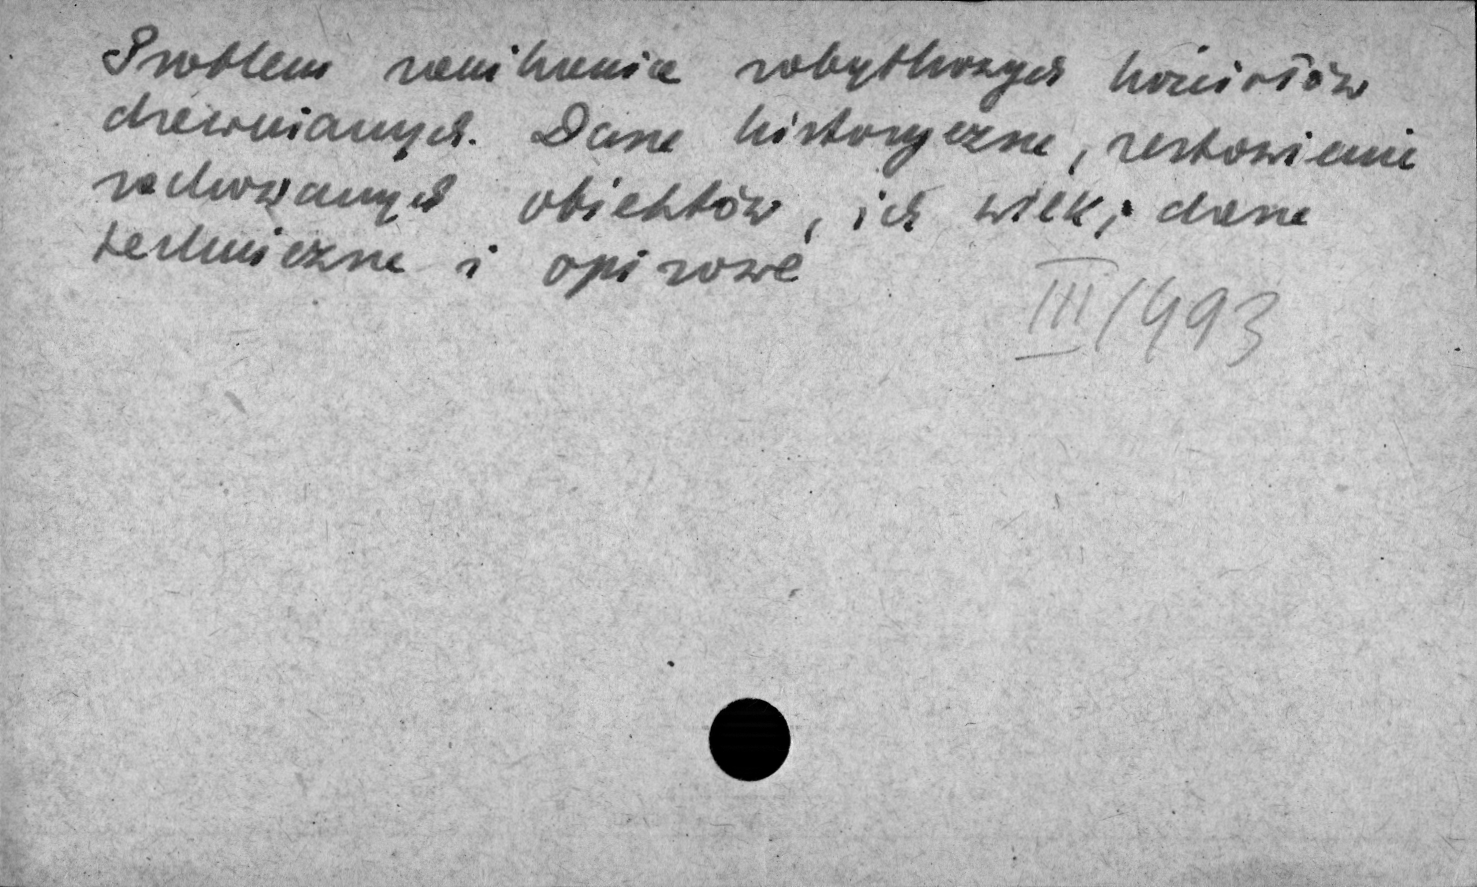 Problem zanikania zabytkowych kościołów
drewnianych. Dane historyczne, zestawienie
zachowanych obiektów, ich wiek, dane
techniczne i opisowe
III/493